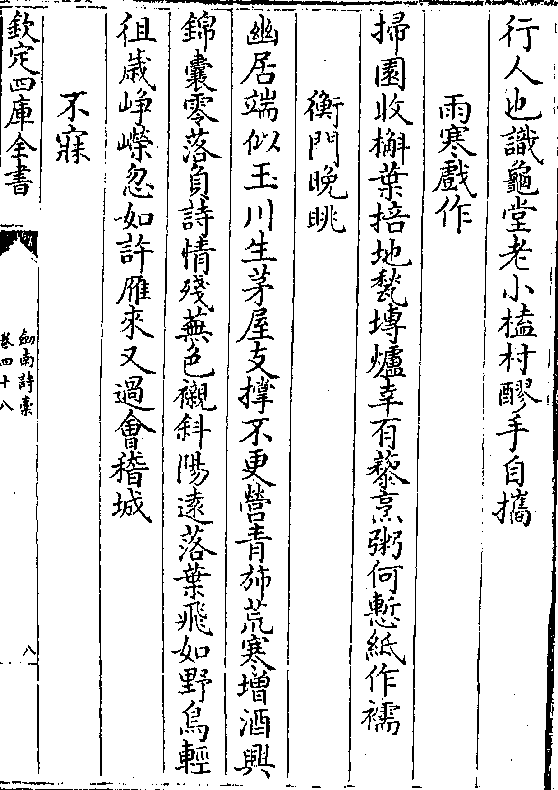 行人也識龜堂老小榼村醪手自攜
雨寒戲作
掃園收槲葉掊地甃塼爐幸有藜烹粥何慙紙作襦
衡門晚眺
幽居端似玉川生茅屋支撑不更營青斾荒寒增酒興
錦囊零落負詩情殘蕪色襯斜陽遠落葉飛如野鳥輕
徂歲峥嶸忽如許雁來又過會稽城
不寐
欽定四庫全書
劍南詩稾
卷四十八
八